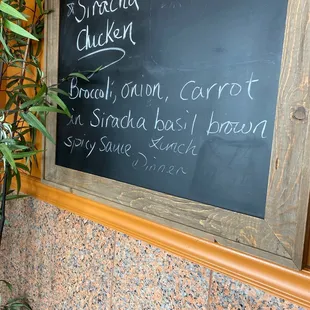 * Siracha
Chicken
Broccoli, onion, Carrot
in Siracha basil brown
spicy Sauce Lunch
Dinner